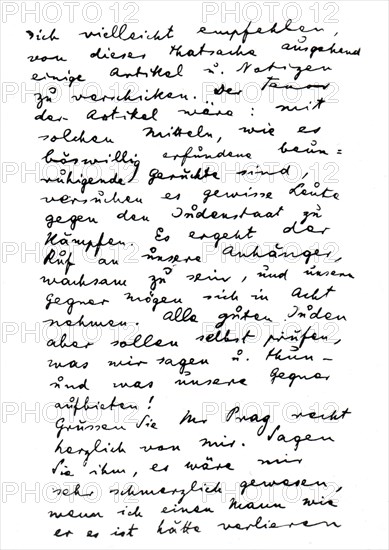 sich vielleicht empfehlen,
von dieser Thatsache ausgehend
einige Artikel u. Notizen
zu verschicken. Der Tenor
der Artikel wäre: mit
solchen Mitteln, wie es
böswillig erfundene beun=
ruhigende Gerüchte sind,
versuchen es gewisse Leute
gegen den Judenstaat zu
kämpfen. Es ergeht der
Ruf an unsere Anhänger,
wachsam zu sein, und unsere
Gegner mögen sich in Acht
nehmen. Alle guten Juden
aber sollen selbst prüfen,
was wir sagen u. thun -
und was unsere Gegner
aufbieten!
Grüssen Sie Mr Prag recht
herzlich von mir. Sagen
Sie ihm, es wäre mir
sehr schmerzlich gewesen,
wenn ich einen Mann wie
er es ist hätte verlieren